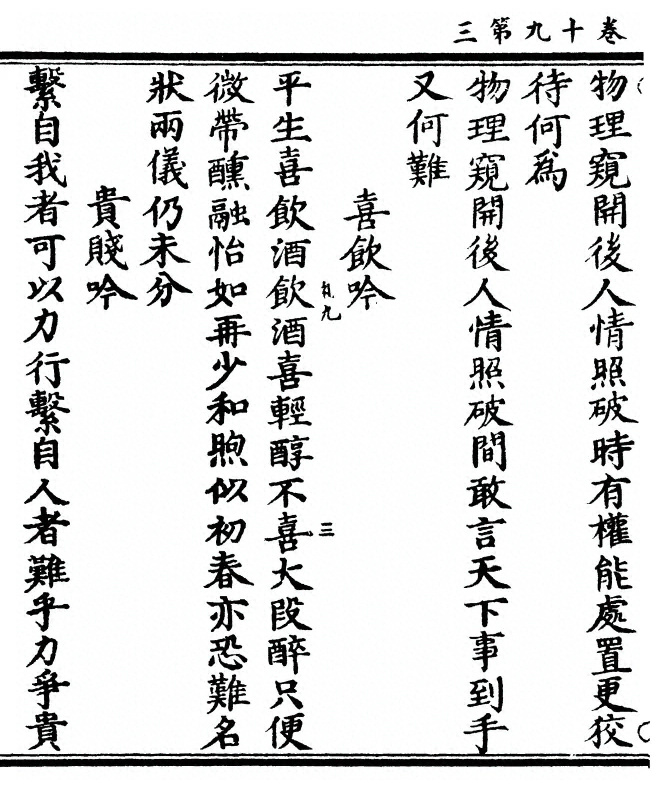 三第九十卷
物理窺開後人情照破時有權能處置更狡
待何爲
物理窺開後人情照破間敢言天下事到手
又何難
喜飲吟
平生喜飲酒飲酒喜輕醇不喜大段醉只便
九
三
微帶醺融怡如再少和煦似初春亦恐難名
狀兩儀仍未分
貴賤吟
繫自我者可以力行繫自人者難乎力爭貴